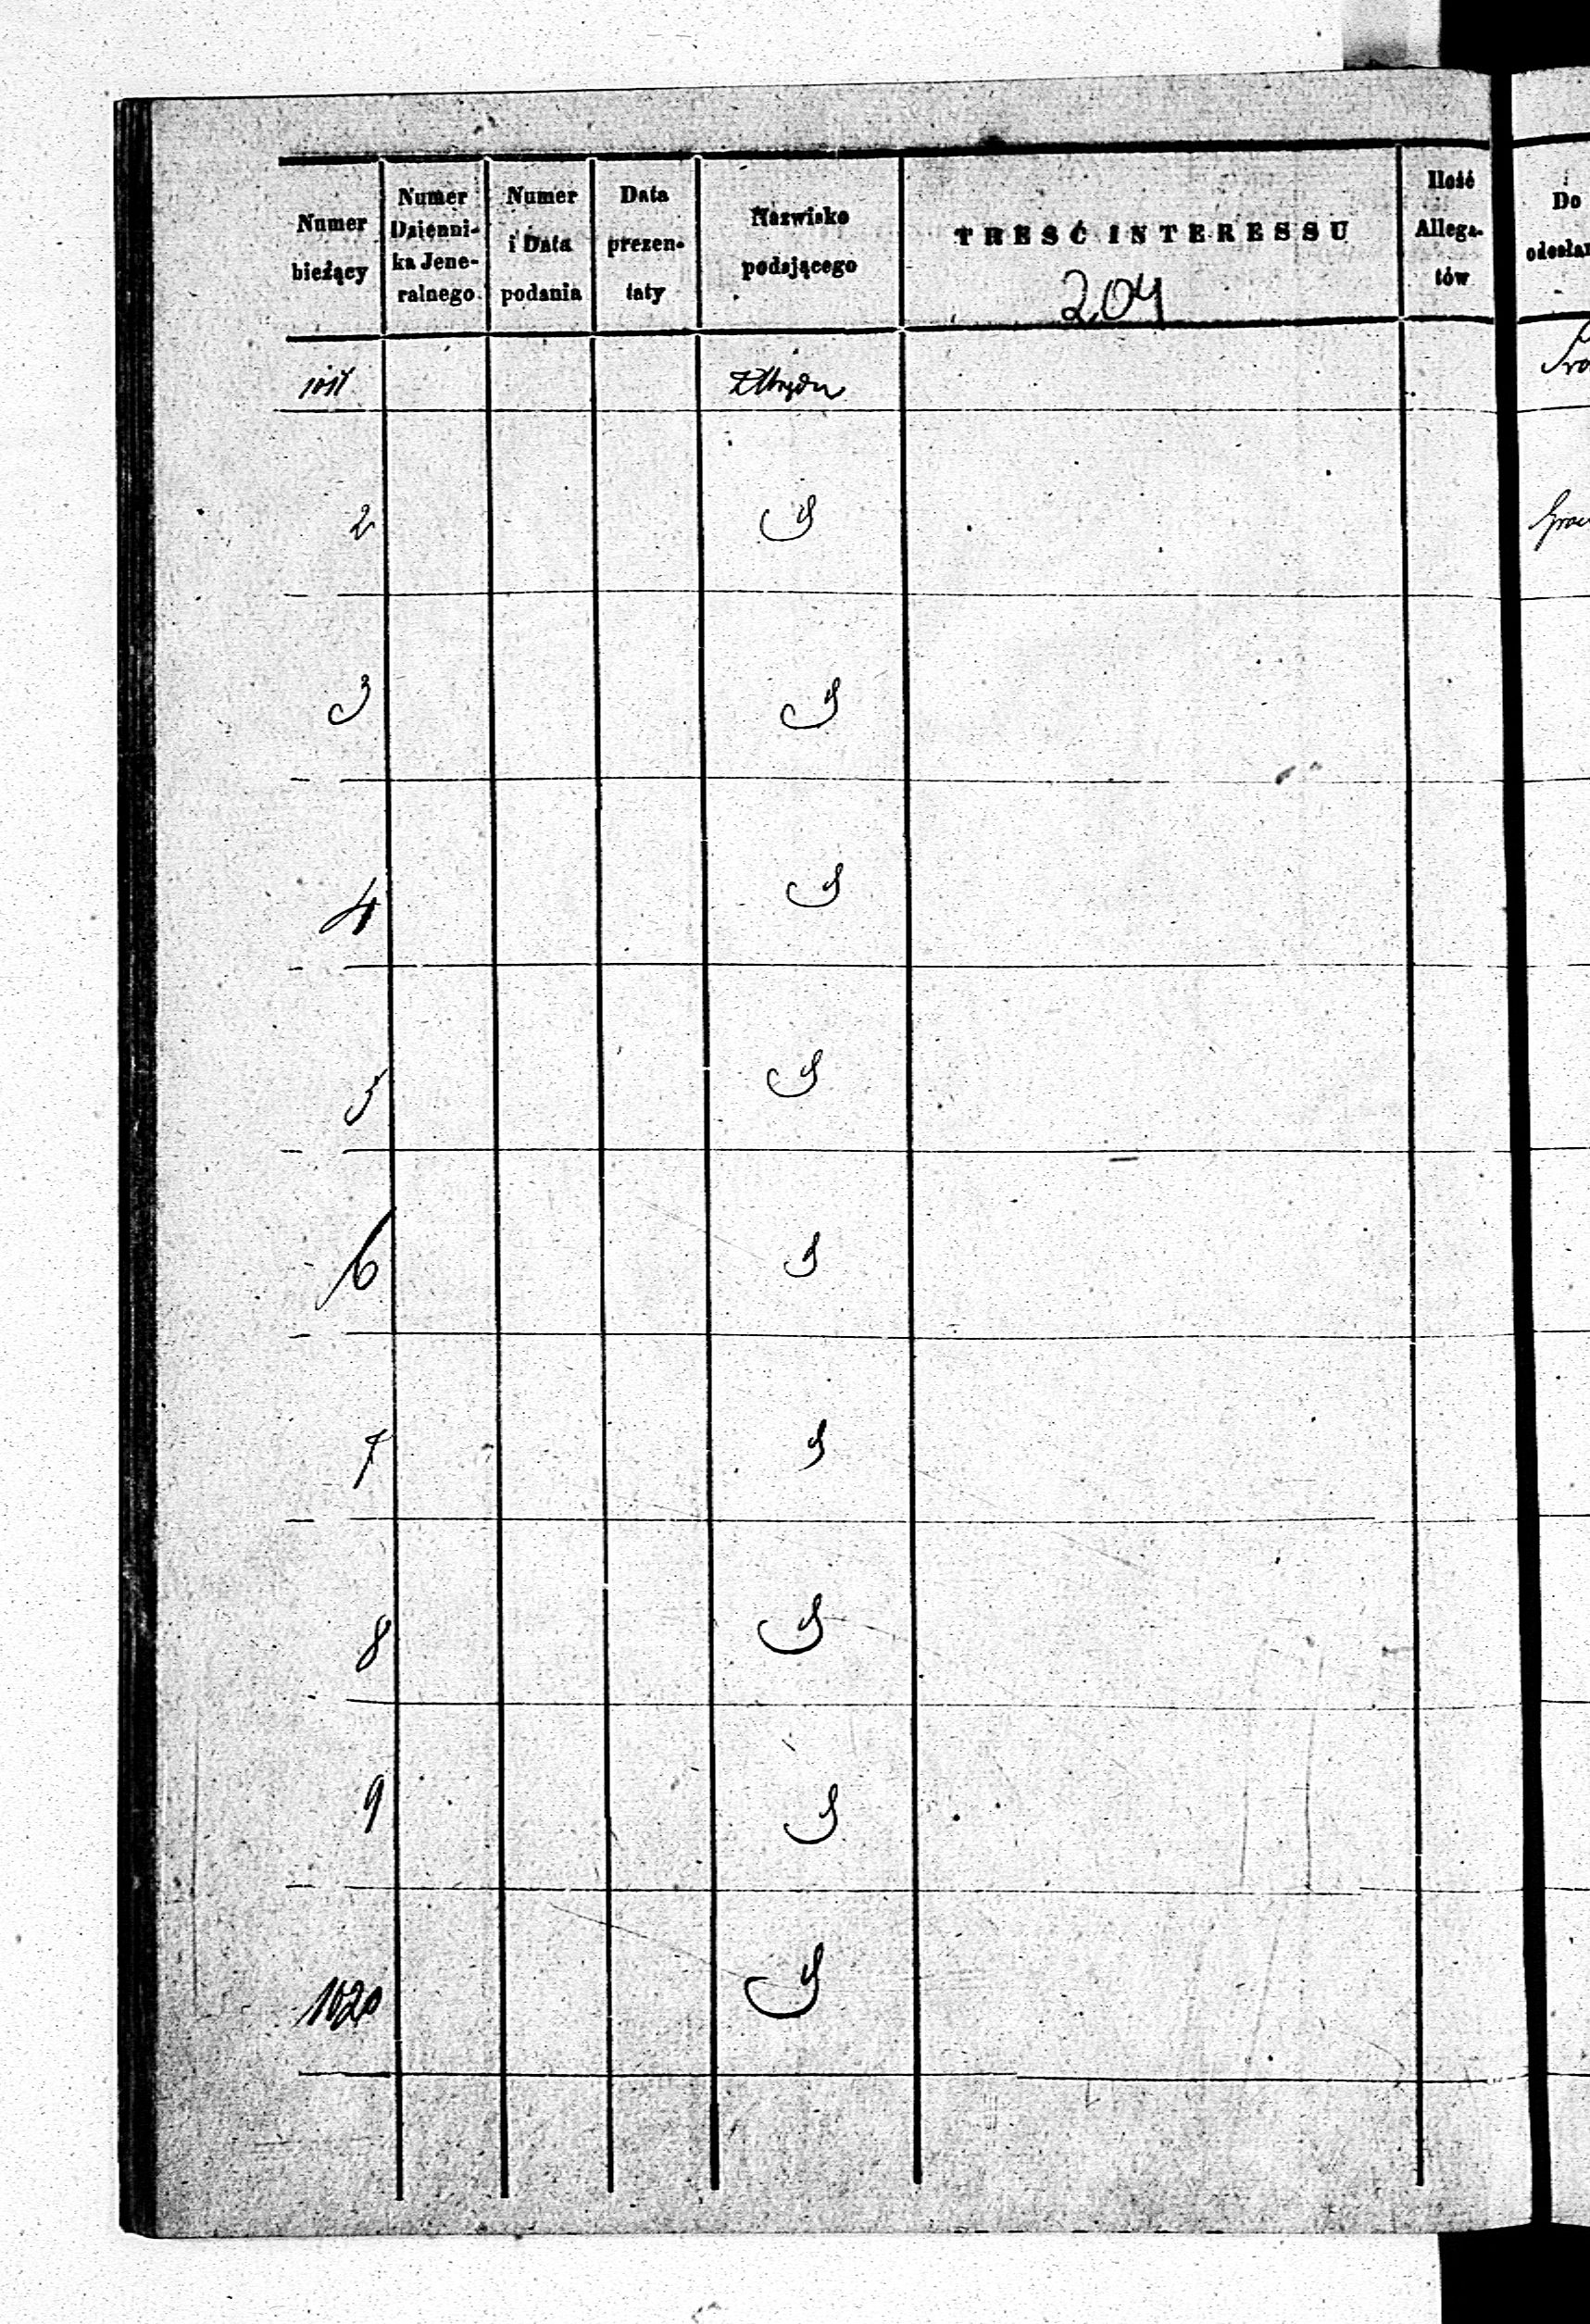 Numer
bieżący
Numer
Dzienni-
ka Jene-
ralnego
Numer
i Data
podania
Data
prezen-
taty
Nazwisko
podającego
TREŚĆ INTERESSU
204
Ilość
Allega-
tów
Do
1011 Z Urzędu
2
3
4
5
6
7
8
9
1020